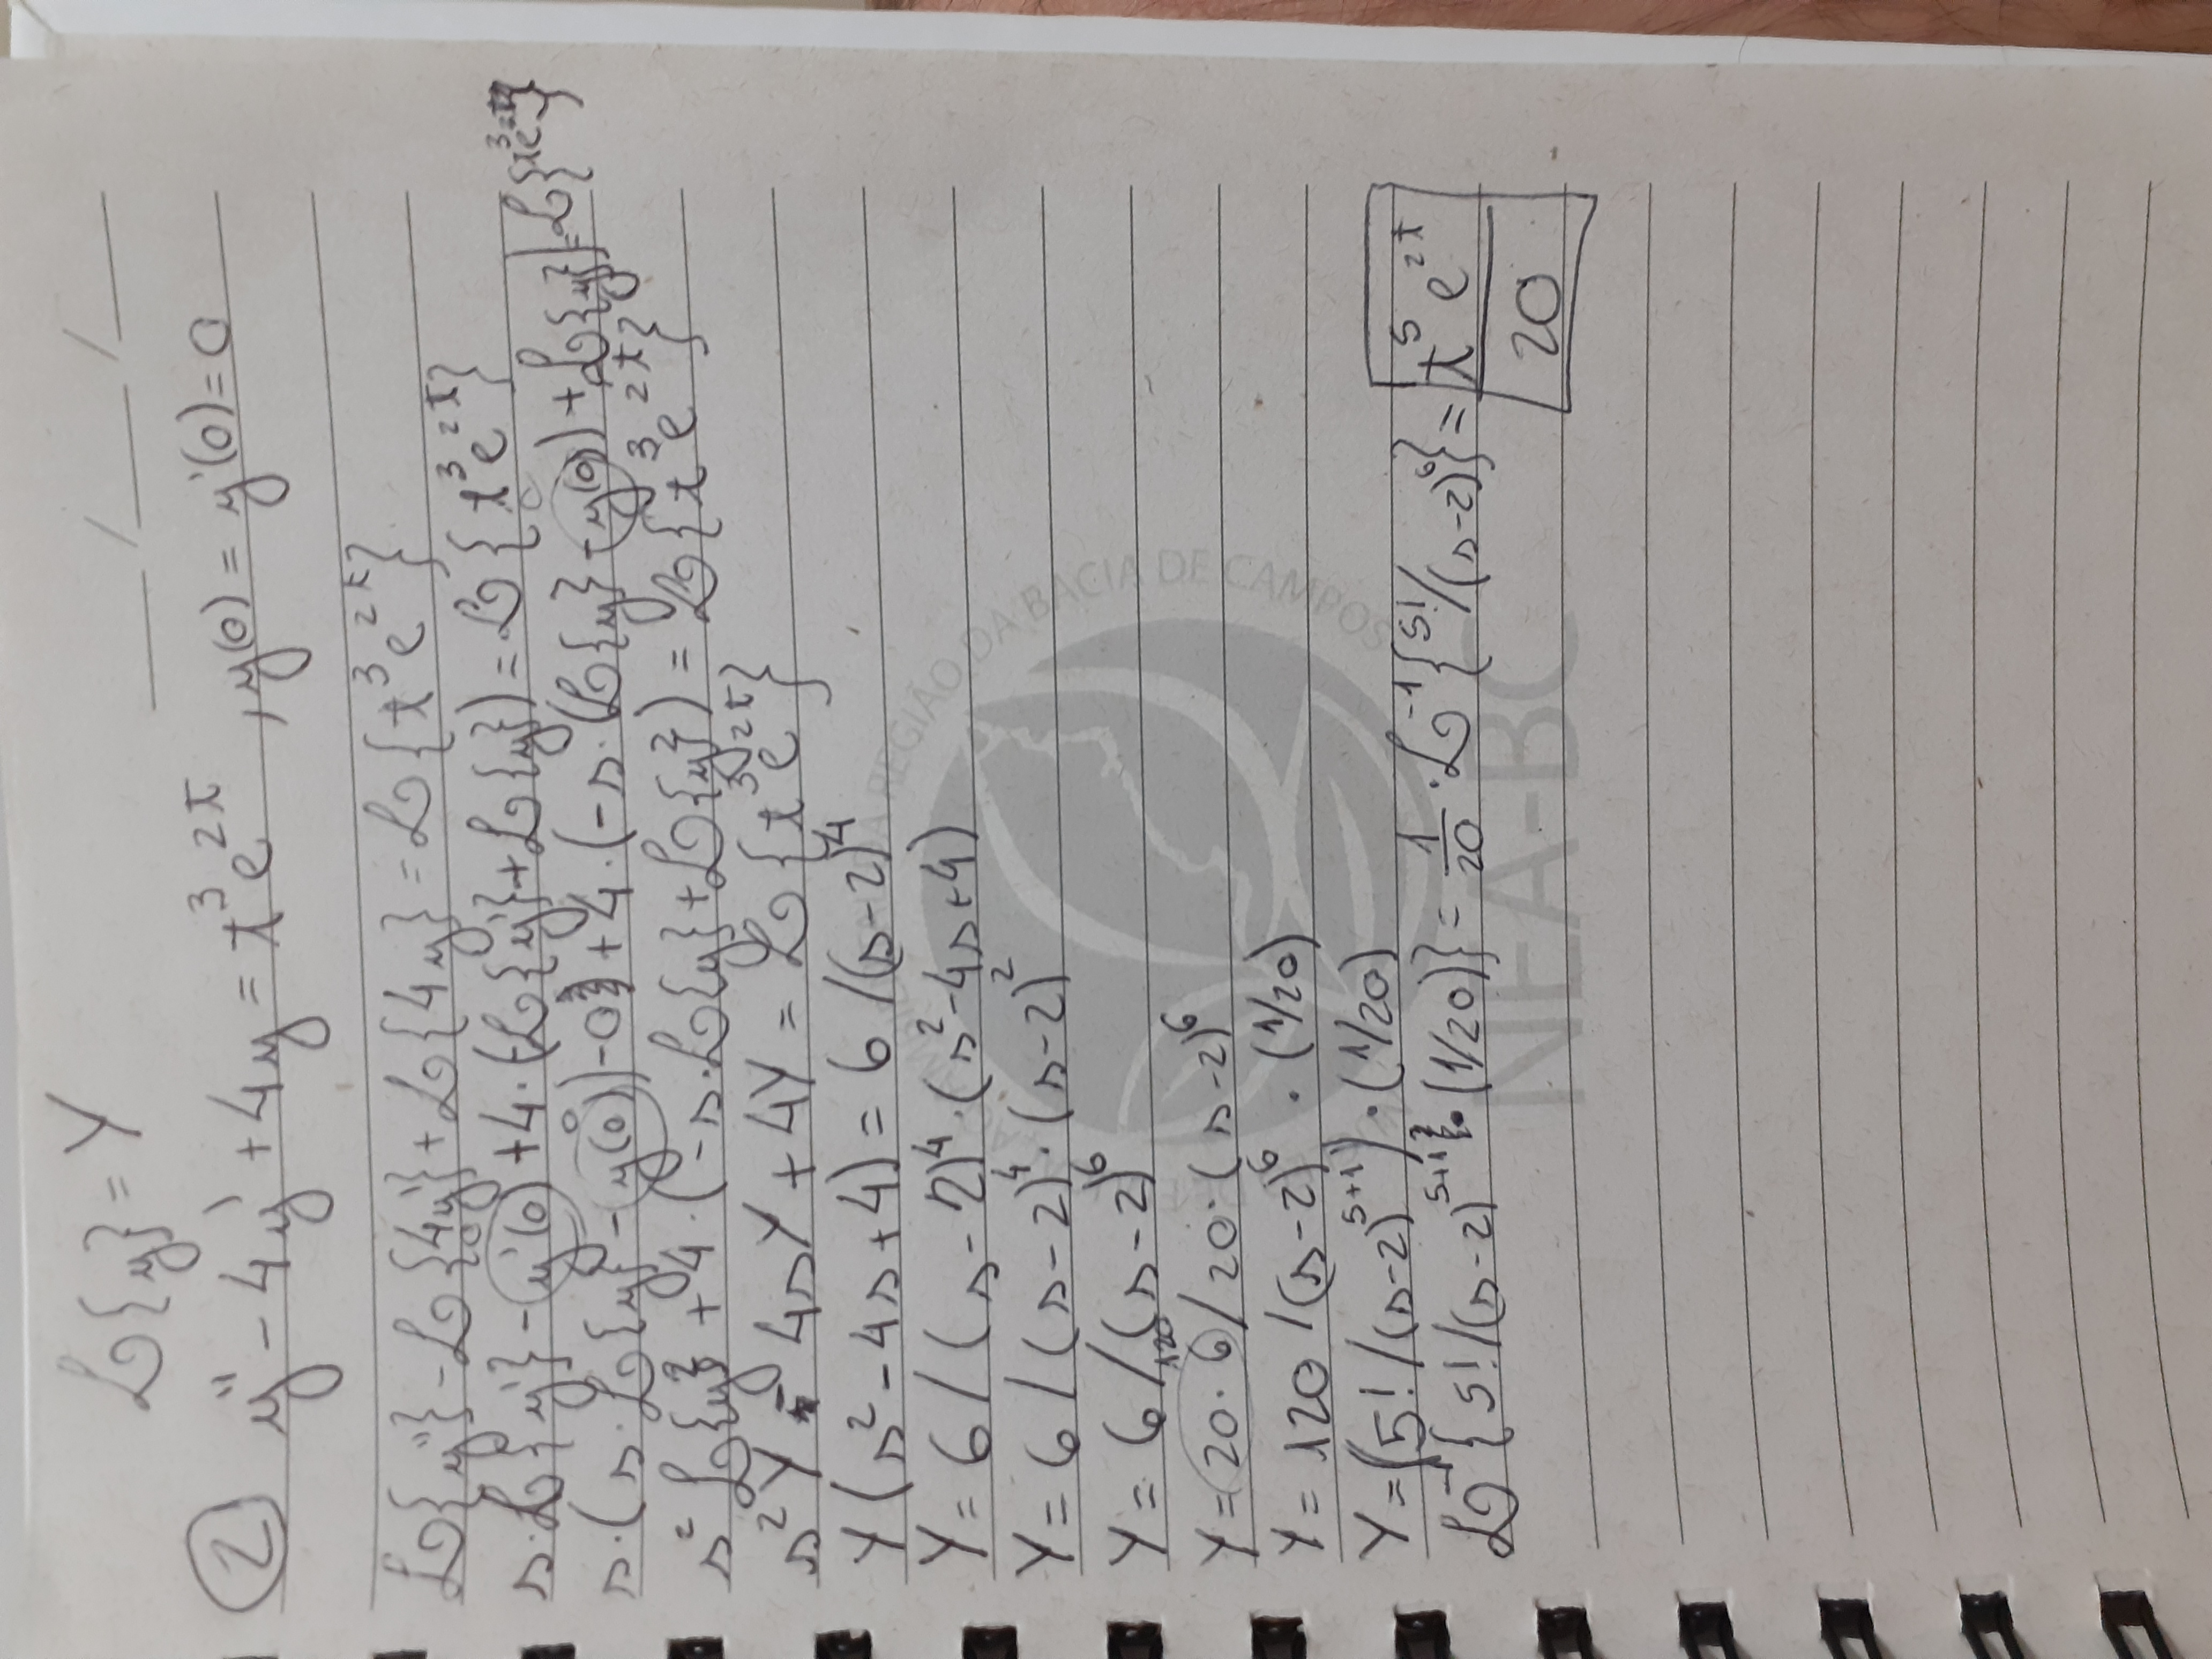 ℒ{y} = Y
__/__/__
② y'' - 4y' + 4y = t³e²ᵗ , y(0) = y'(0) = 0
ℒ{y''} - ℒ{4y'} + ℒ{4y} = ℒ{t³e²ᵗ}
s·ℒ{y'} - y'(0) + 4·(-ℒ{y'} + ℒ{y}) = ℒ{t³e²ᵗ}
s·(s·ℒ{y} - y(0)) - 0 + 4·(-s·(ℒ{y} - y(0)) + ℒ{y}) = ℒ{t³e²ᵗ}
s²ℒ{y} + 4·(-s·ℒ{y} + ℒ{y}) = ℒ{t³e²ᵗ}
s²Y - 4sY + 4Y = ℒ{t³e²ᵗ}
Y(s² - 4s + 4) = 6/(s-2)⁴
Y = 6/(s-2)⁴·(s²-4s+4)
Y = 6/(s-2)⁴·(s-2)²
Y = 6/(s-2)⁶
120
Y = 20·6/20·(s-2)⁶
Y = 120/(s-2)⁶ · (1/20)
Y = (5!/(s-2)⁵⁺¹)·(1/20)
ℒ⁻¹{5!/(s-2)⁵⁺¹·(1/20)} = 1/20·ℒ⁻¹{5!/(s-2)⁶} = t⁵e²ᵗ/20
REGIÃO DA BACIA DE CAMPOS
NEA-BC